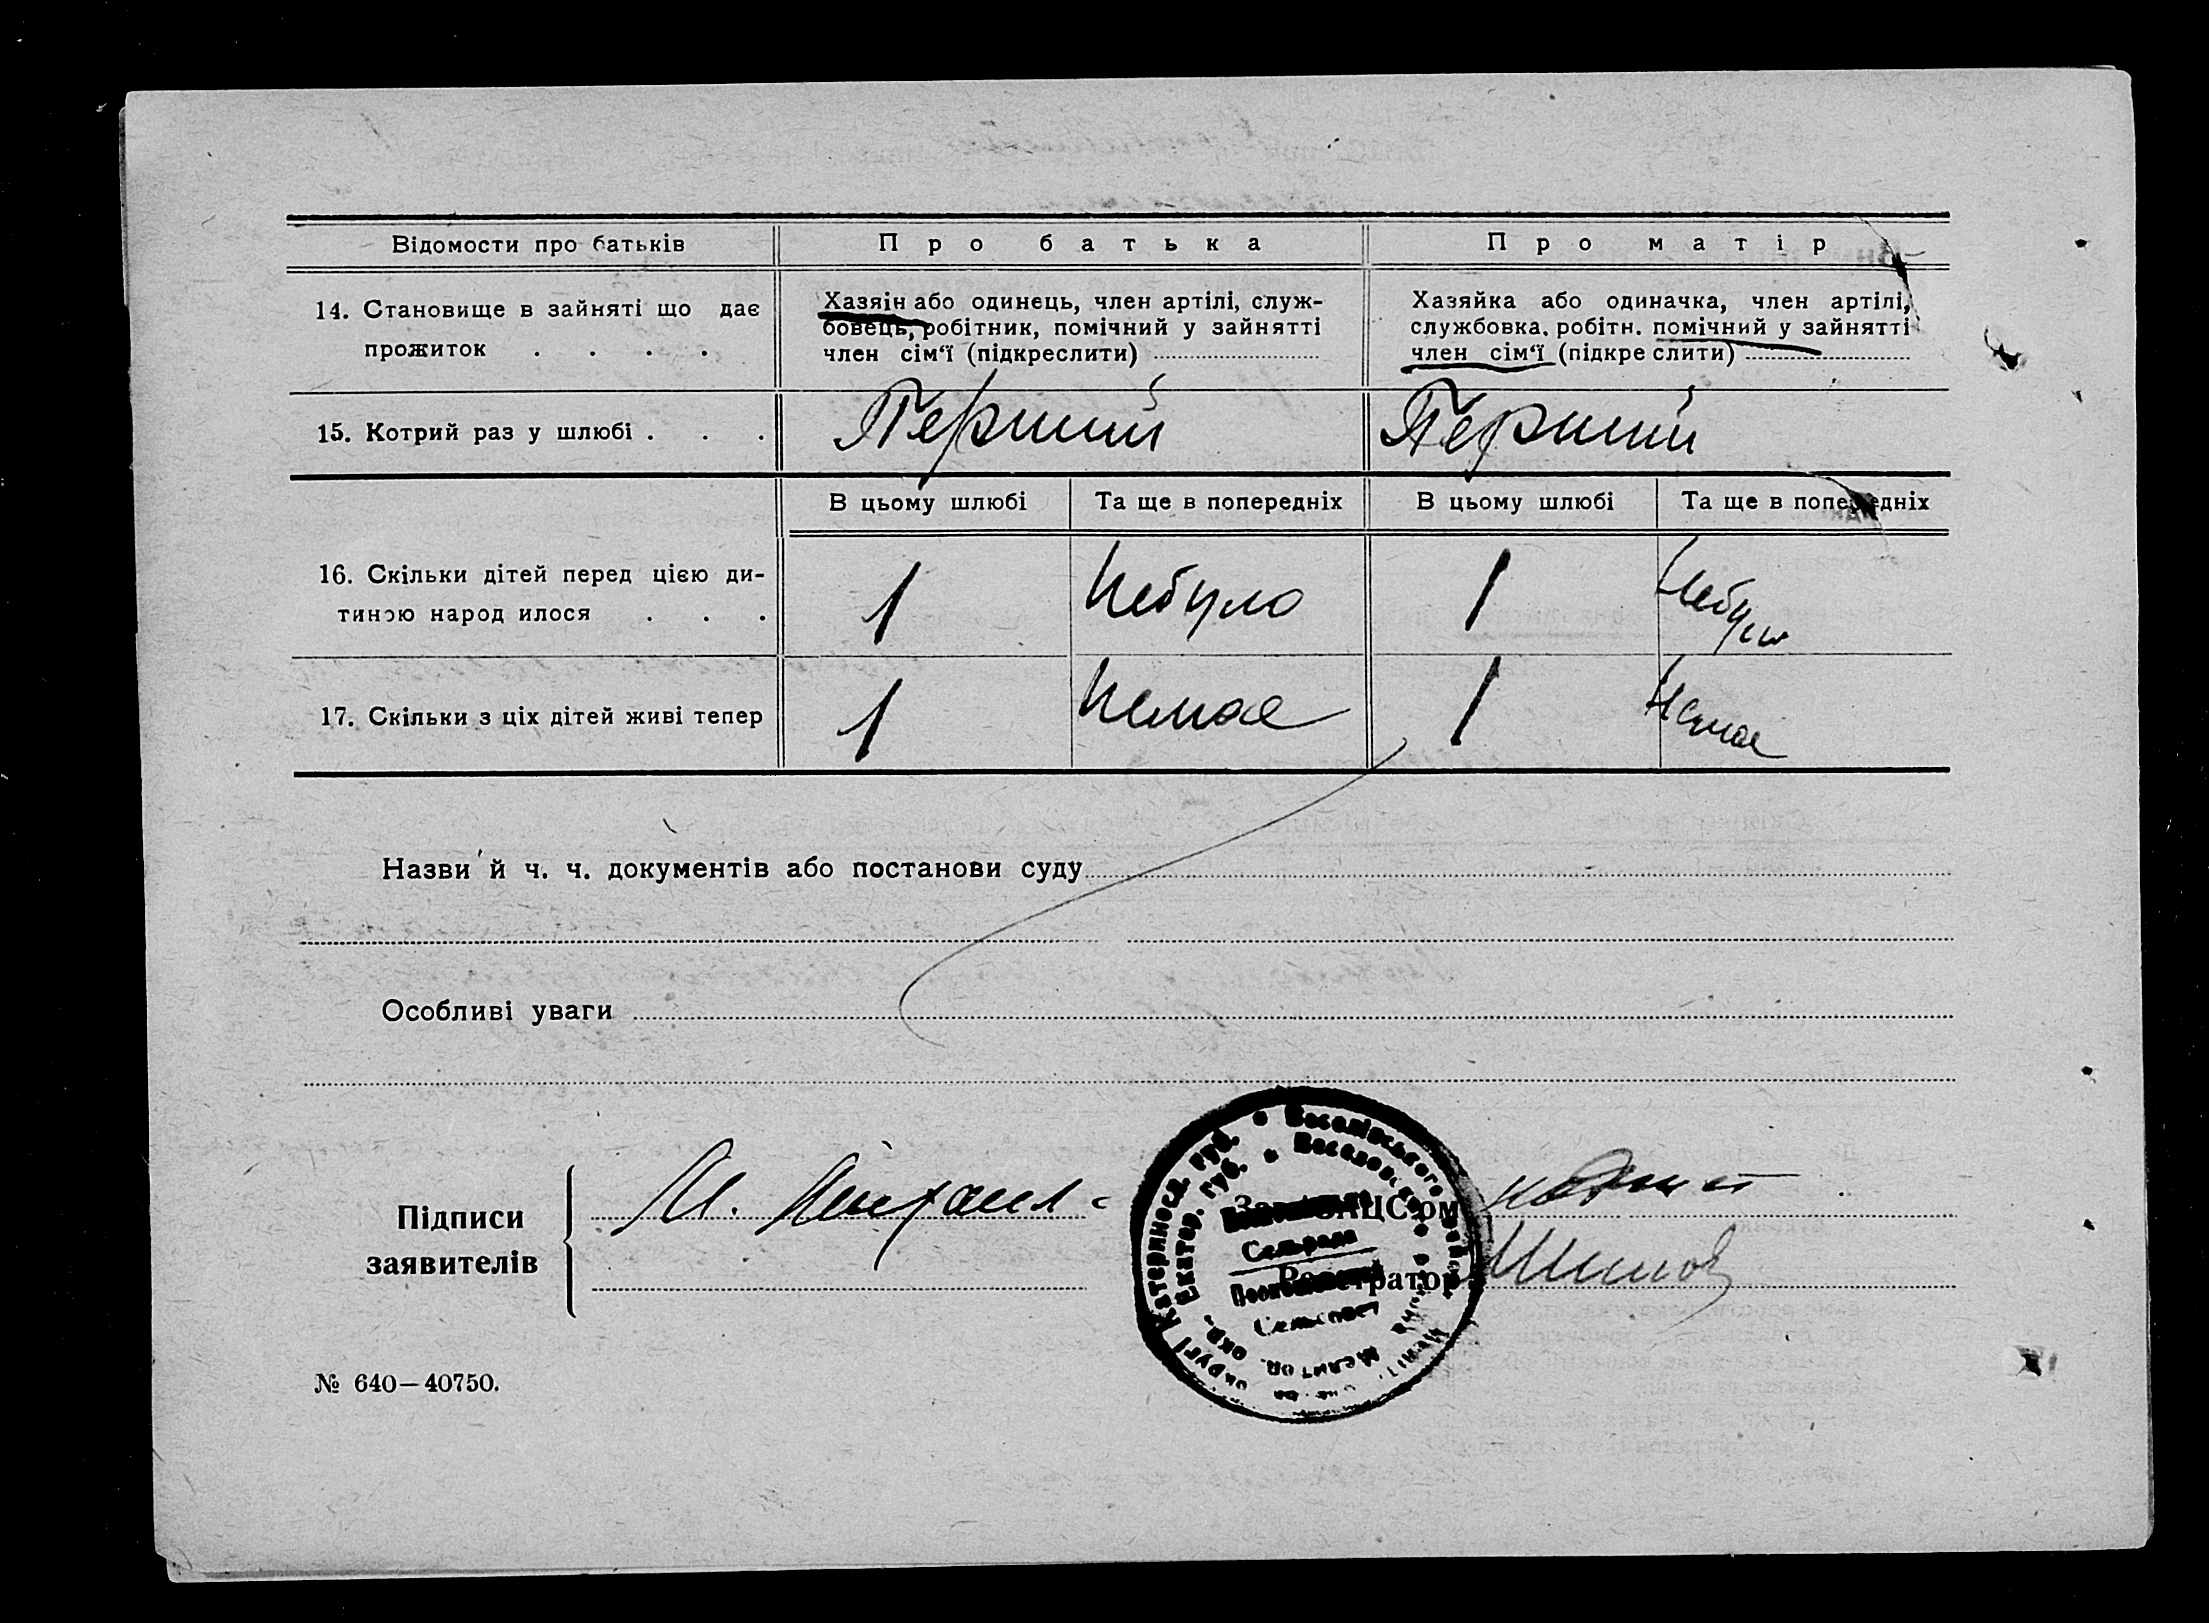 Відомости про батьків
Про батька
Про матір
14. Становище в зайняті що дає
прожиток . . . .
Хазяїн або одинець, член артілі, служ-
бовець, робітник, помічний у зайнятті
член сім'ї (підкреслити)
Хазяйка або одиначка, член артілі,
службовка, робітн. помічний у зайнятті
член сім'ї (підкреслити)
15. Котрий раз у шлюбі . . .
Перший
Перший
В цьому шлюбі
Та ще в попередніх
В цьому шлюбі
Та ще в попередніх
16. Скільки дітей перед цією ди-
тиною народилося . . .
1
Небуло
1
Небуло
17. Скільки з ціх дітей живі тепер
1
Немає
1
Немає
Назви й ч. ч. документів або постанови суду
Особливі уваги
Підписи
заявителів
Катериносл. губ. Веселівського
Екатер. губ.
Зав. ЗАЦС'ом
Сельрада
Реєстратор
Сельсовет
Мелитоп. окр.
№ 640—40750.